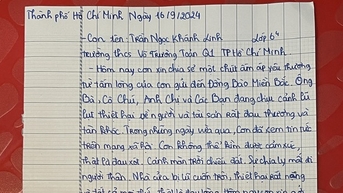 Thành phố Hồ Chí Minh Ngày 16/9/2024
- Con tên: Trần Ngọc Khánh Linh Lớp 6⁴
trường thcs Võ Trường Toản Q1 TP Hồ Chí Minh
- Hôm nay con xin chia sẻ một chút ấm áp yêu thương
từ tấm lòng của con gửi đến Đồng Bào Miền Bắc. Ông
Bà, Cô Chú, Anh Chị và Các Bạn đang chịu cảnh lũ
lụt thiệt hại về người và tài sản rất đau thương và
tàn khốc. Trong những ngày vừa qua, con đã xem tin tức
trên mạng xã hội. Con không thể kìm được cảm xúc,
thật là đau xót. Cảnh màn trời chiếu đất. Sự chia ly mất đi
người thân. Nhà cửa bị lũ cuốn trôi, thiệt hại rất nặng